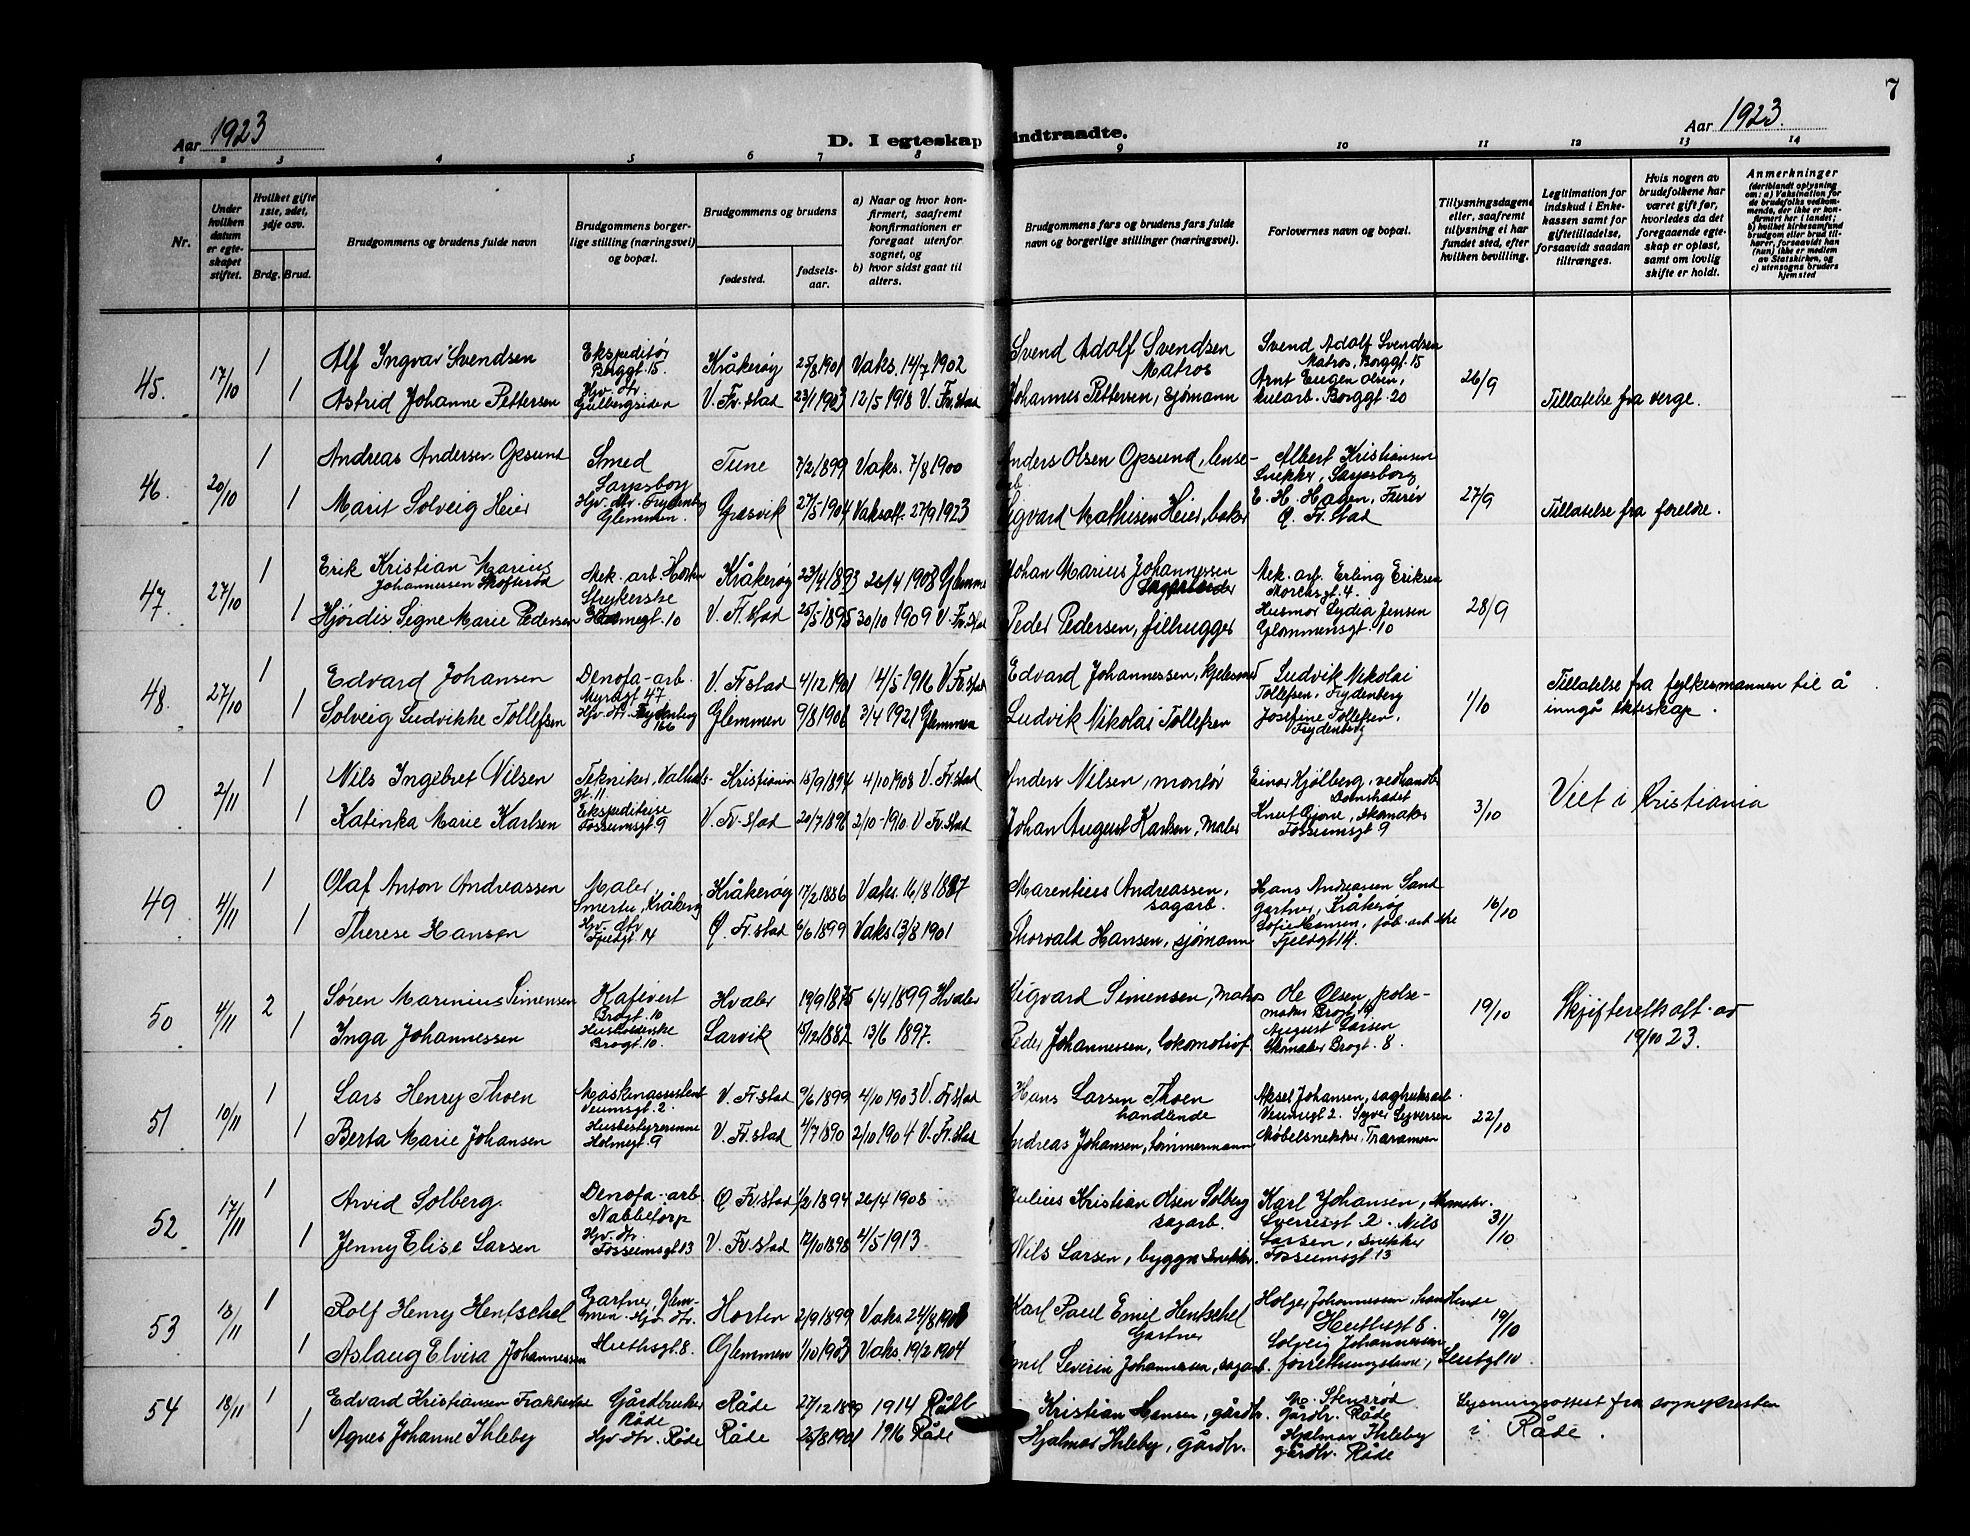 7
Aar 1923
D. I egteskap indtraadte.
Aar 1923.
1 2 3 4 5 6 7 8 9 10 11 12 13 14
Nr.
Under hvilken datum er egteskapet stiftet.
Hvilket gifte 1ste, 2det, 3dje osv.
Brdg. Brud.
Brudgommens og brudens fulde navn
Brudgommens borgerlige stilling (næringsvei) og bopæl.
Brudgommens og brudens
fødested.
fødselsaar.
a) Naar og hvor konfirmert, saafremt konfirmationen er foregaat utenfor sognet, og
b) hvor sidst gaat til alters.
Brudgommens fars og brudens fars fulde navn og borgerlige stillinger (næringsvei).
Forlovernes navn og bopæl.
Tillysningsdagene eller, saafremt tillysning ei har fundet sted, efter hvilken bevilling.
Legitimation for indskud i Enkekassen samt for giftetilladelse, forsaavidt saadan tiltrænges.
Hvis nogen av brudefolkene har været gift før, hvorledes da det foregaaende egteskap er opløst, samt om lovlig skifte er holdt.
Anmerkninger
(deriblandt oplysning om: a) Vaksination for de brudefolks vedkommende, der ikke er konfirmert her i landet; b) hvilket kirkesamfund brudgom eller brud tilhører, forsaavidt han (hun) ikke er medlem av Statskirken, og c) utensogns bruders hjemsted
45. 17/10 1 Alf Ingvar Svendsen Ekspeditør Borggt. 15. Kråkerøy 25/8 1901 Vaks. 14/7 1902 Svend Adolf Svendsen Matros Svend Adolf Svendsen Matros, Borggt. 15 26/9
1 Astrid Johanne Pettersen Hjv. dtr. Gulbergsiden V. Fr.stad 23/1 1903 12/5 1918 V. Fr.stad Johannes Pettersen, sjømann Arnt Eugen Olsen, Borggt. 20 Tillatelse fra verge.
46. 20/10 1 Andreas Andersen Opsund Smed Sarpsborg Tune 7/2 1899 Vaks. 7/8 1900 Anders Olsen Opsund, lense- Albert Kristiansen Snekker, Sarpsborg 27/9
1 Marit Solveig Heier Hjv. dtr. Frydenberg Glemmen. Græsvik 27/5 1904 Vaksatt. 27/9 1923 Sigvard Mathisen Heier, baker E. H. Hagen, Ø. Fr.stad Tillatelse fra foreldre.
47. 27/10 1 Erik Kristian Marius Johannessen Skofterød Mek. arb. Horten Kråkerøy 23/4 1893 26/4 1908 Glemmen Johan Marius Johannessen Sagarbeider Mek. arb. Erling Eriksen gt. 4. 28/9
1 Hjørdis Signe Marie Pedersen Strykerske gt. 10 V. Fr.stad 26/5 1895 30/10 1909 V. Fr.stad Peder Pedersen, filhugger Husmor Lydia Jensen Glommensgt. 10
48. 27/10 1 Edvard Johansen Denofa-arb. Myrbgt 47 V. Fr.stad 4/12 1901 14/5 1916 V. Fr.stad Edvard Johannessen, kjelesmed Ludvik Nikolai Tollefsen, Frydenberg 1/10 Tillatelse fra fylkesmannen til å inngå ekteskap.
1 Solveig Ludvikke Tollefsen Hjv. dtr. Frydenberg 166 Glemmen 9/8 1906 3/4 1921 Glemmen Ludvik Nikolai Tollefsen Josefine Tollefsen, Frydenberg
0 2/11 1 Nils Ingebret Nilsen Tekniker, Valhals-gt. 11. Kristiania 15/9 1894 4/10 1908 V. Fr.stad Anders Nilsen, montør Einar Kjølberg, vedhandl. 3/10 Viet i Kristiania
1 Katinka Marie Karlsen Ekspeditrise Fossumsgt 9 V. Fr.stad 20/7 1896 2/10-1910. V Fr.stad Johan August Karlsen, Maler Knut Gjone, skomaker Fossumsgt 9
49 4/11 1 Olaf Anton Andreassen Maler, Smertu, Kråkerøy Kråkerøy 17/2 1886 Vaks. 16/8 1887 Marentius Andreassen, sagarb. Hans Andreassen Sand Gartner, Kråkerøy 16/10
1 Therese Hansen Hjv. dtr. Fjeldgt 14 Ø. Fr.stad 6/6 1899 Vaks 13/8 1901 Thorvald Hansen, sjømann Sofie Hansen, fab. arb.ske Fjeldgt 14.
50 4/11 2 Søren Marinius Simensen Kafevert Brogt. 10 Hvaler 19/9 1875 6/4 1899 Hvaler Sigvard Simensen, Matros Ole Olsen, pølse-maker Brogt. 19 19/10 Skifteretsatt. av 19/10 23.
1 Inga Johannessen Husholderske Brogt. 10. Larvik 15/12 1882 13/6 1897. Peder Johannessen, lokomotivf. August Larsen Skomaker Brogt. 8.
51 10/11 1 Lars Henry Thoen Maskinassistent Veumsgt. 2. V. Fr.stad 9/6 1899 4/10 1903 V. Fr.stad Hans Larsen Thoen handlende Aksel Johansen, sagbruksarb. Veumsgt 2. 22/10
1 Berta Marie Johansen Husbestyrerinne Holmegt. 9 V. Fr.stad 4/7 1890 2/10 1904 V. Fr.stad Andreas Johansen, tømmermann Syver Syversen Møbelsnekker, Traramen
52 17/11 1 Arvid Solberg. Denofa-arb. Nabbetorp Ø. Fr.stad 1/2 1894 26/4 1908 Julius Kristian Olsen Solberg sagarb. Karl Johansen, Skomaker. Sverresgt 2. 31/10
1 Jenny Elise Larsen Hjv. dtr. Fossumsgt. 13 V. Fr.stad 17/10 1898 4/5 1913. Nils Larsen, byggn. snekker. Nils Larsen, snekker Fossumsgt. 13
53 18/11 1 Rolf Henry Hentschel Gartner, Glemmen. Horten 2/9 1899 Vaks. 24/8 Karl Paul Emil Hentschel Gartner Holger Johannessen, handlende Huthsgt 8. 19/10
1 Aslaug Elvira Johannessen Hjv. dtr. Huthsgt. 8. Glemmen 1/10 1903 Vaks. 19/2 1904 Emil Severin Johannessen, sagarb. Solveig Johannessen forretningsdame,
54 18/11 1 Edvard Kristiansen Gårdbruker Råde Råde 27/12 1899 1914 Råde Kristian Hansen, gårdbr. Stensrød Gårdbr. Råde Lysningsattest fra sognepresten i Råde.
1 Agnes Johanne Ihleby Hjv. dtr. Råde Råde 25/8 1901 1916 Råde Hjalmar Ihleby, gårdbr. Hjalmar Ihleby gårdbr. Råde